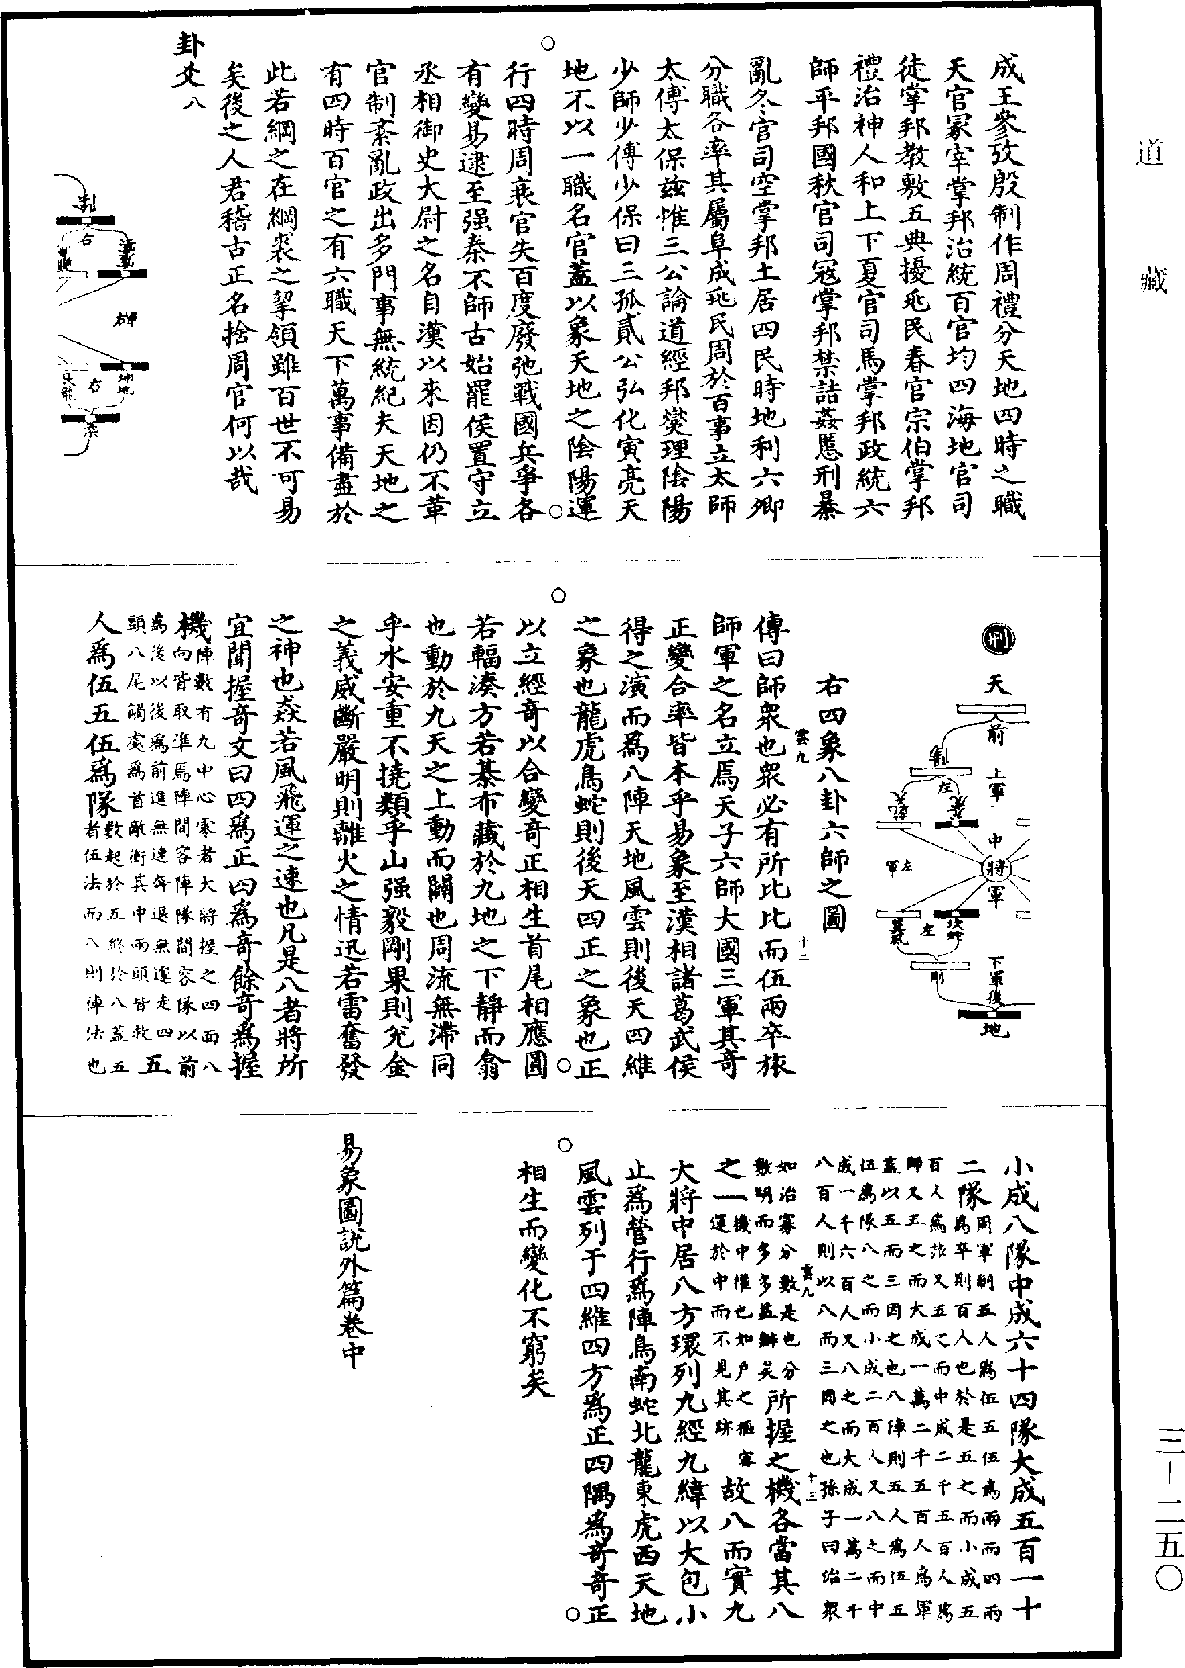 道藏
成王參攷殷制作周禮分天地四時之職
天官冢宰掌邦治統百官均四海地官司
徒掌邦教敷五典擾兆民春官宗伯掌邦
禮治神人和上下夏官司馬掌邦政統六
師平邦國秋官司寇掌邦禁詰姦慝刑暴
亂冬官司空掌邦土居四民時地利六卿
分職各率其屬阜成兆民周於百事立太師
太傅太保兹惟三公論道經邦燮理陰陽
少師少傅少保曰三孤貳公弘化寅亮天
地不以一職名官蓋以象天地之陰陽運
行四時周衰官失百度廢弛戰國兵爭各
有變易逮至强秦不師古始罷侯置守立
丞相御史大尉之名自漢以來因仍不革
官制紊亂政出多門事無統紀夫天地之
有四時百官之有六職天下萬事備盡於
此若綱之在綱裘之挈領雖百世不可易
矣後之人君稽古正名捨周官何以哉
卦爻八
右
右
天
前
上軍
左
中
將
軍
左軍
左
下軍後
地
右四象八卦六師之圖
雲九
十二
傳曰師衆也衆必有所比比而伍兩卒旅
師軍之名立焉天子六師大國三軍其奇
正變合率皆本乎易象至漢相諸葛武侯
得之演而為八陣天地風雲則後天四維
之象也龍虎鳥蛇則後天四正之象也正
以立經奇以合變奇正相生首尾相應圓
若輻湊方若棊布藏於九地之下靜而翕
也動於九天之上動而闢也周流無滯同
乎水安重不撓類乎山强毅剛果則兌金
之義威斷嚴明則離火之情迅若雷奮發
之神也焱若風飛運之速也凡是八者將所
宜聞握奇文曰四為正四為奇餘奇為握
機陣數有九中心零者大將握之四面八向皆取準焉陣間容陣隊間容隊以前為後以後為前進無速奔退無遽走四頭八尾觸處為首敵衝其中兩頭皆救五
人為伍五伍為隊數起於五終於八蓋五者伍法而八則陣法也
小成八隊中成六十四隊大成五百一十
二隊周軍制五人為伍五伍為兩而四兩為卒則百人也於是五之而小成五百人為旅又五之而中成二千五百人為師又五之而大成一萬二千五百人為軍蓋以五而三因之也八陣則五人為伍五伍為隊八之而小成二百人又八之而中成一千六百人又八之而大成一萬二千八百人則以八而三因之也孫子曰治衆
如治寡分數是也分數明而多多益辦矣所握之機各當其八
之一機中權也如戶之樞 運於中而不見其跡故八而實九
雲九
十三
大將中居八方環列九經九緯以大包小
止為營行為陣鳥南蛇北龍東虎西天地
風雲列于四維四方為正四隅為奇奇正
相生而變化不窮矣
易象圖說外篇卷中
三－二五〇